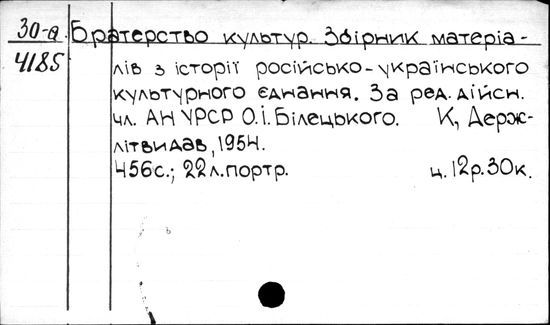 30-а Братерство культур. Збірник матеріа-
4185 лів з історії російсько-українського
культурного єднання. За ред. дійсн.
чл. АН УРСР О.І. Білецького. К, Держ-
літвидав, 1954.
456с.; 22л.портр. ц. 12р.30к.